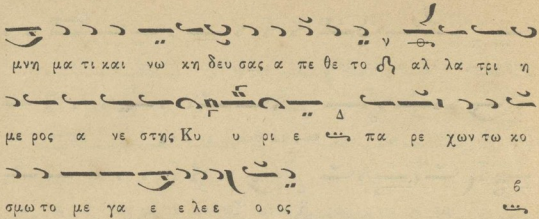 μνη μα τι και νω κη δευ σας α πε θε το αλ λα τρι η
με ρος α νε στης Κυ υ ρι ε πα ρε χων τω κο
σμω το με γα ε ε λε ε ο ος